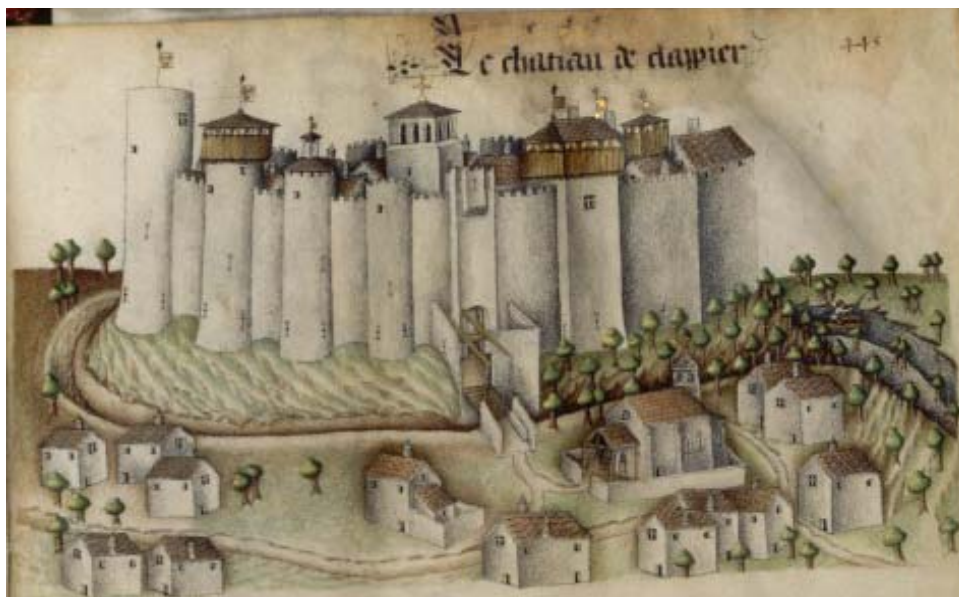 Le chatiau de clappier
445